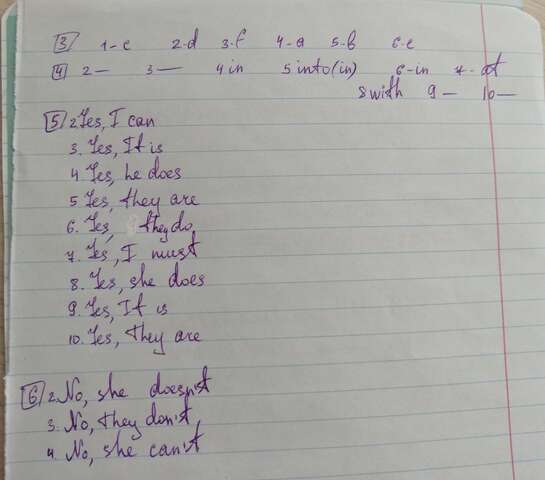 3 1-c 2-d 3-f 4-a 5-b 6-e
4 2— 3— 4 in 5 into(in) 6-in 7- at
8 with 9— 10—
5 2 Yes, I can
3. Yes, It is
4 Yes, he does
5 Yes, they are
6. Yes, they do,
7. Yes, I must
8. Yes, she does
9. Yes, It is
10. Yes, they are
6 2. No, she doesn't
3. No, they don't,
4. No, she can't